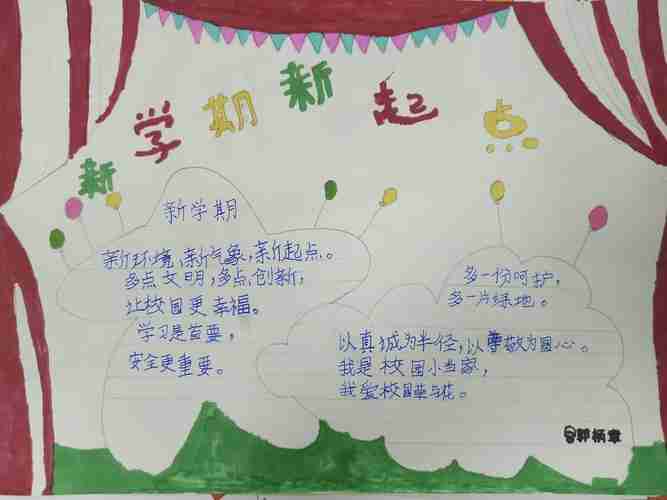 新学期新起点
新学期
新环境,新气象,新起点。
多点文明,多点创新,
让校园更幸福。
学习是首要,
安全更重要。
多一份呵护,
多一片绿地。
以真诚为半径,以尊敬为圆心。
我是校园小当家,
我爱校园草与花。
郭柄章